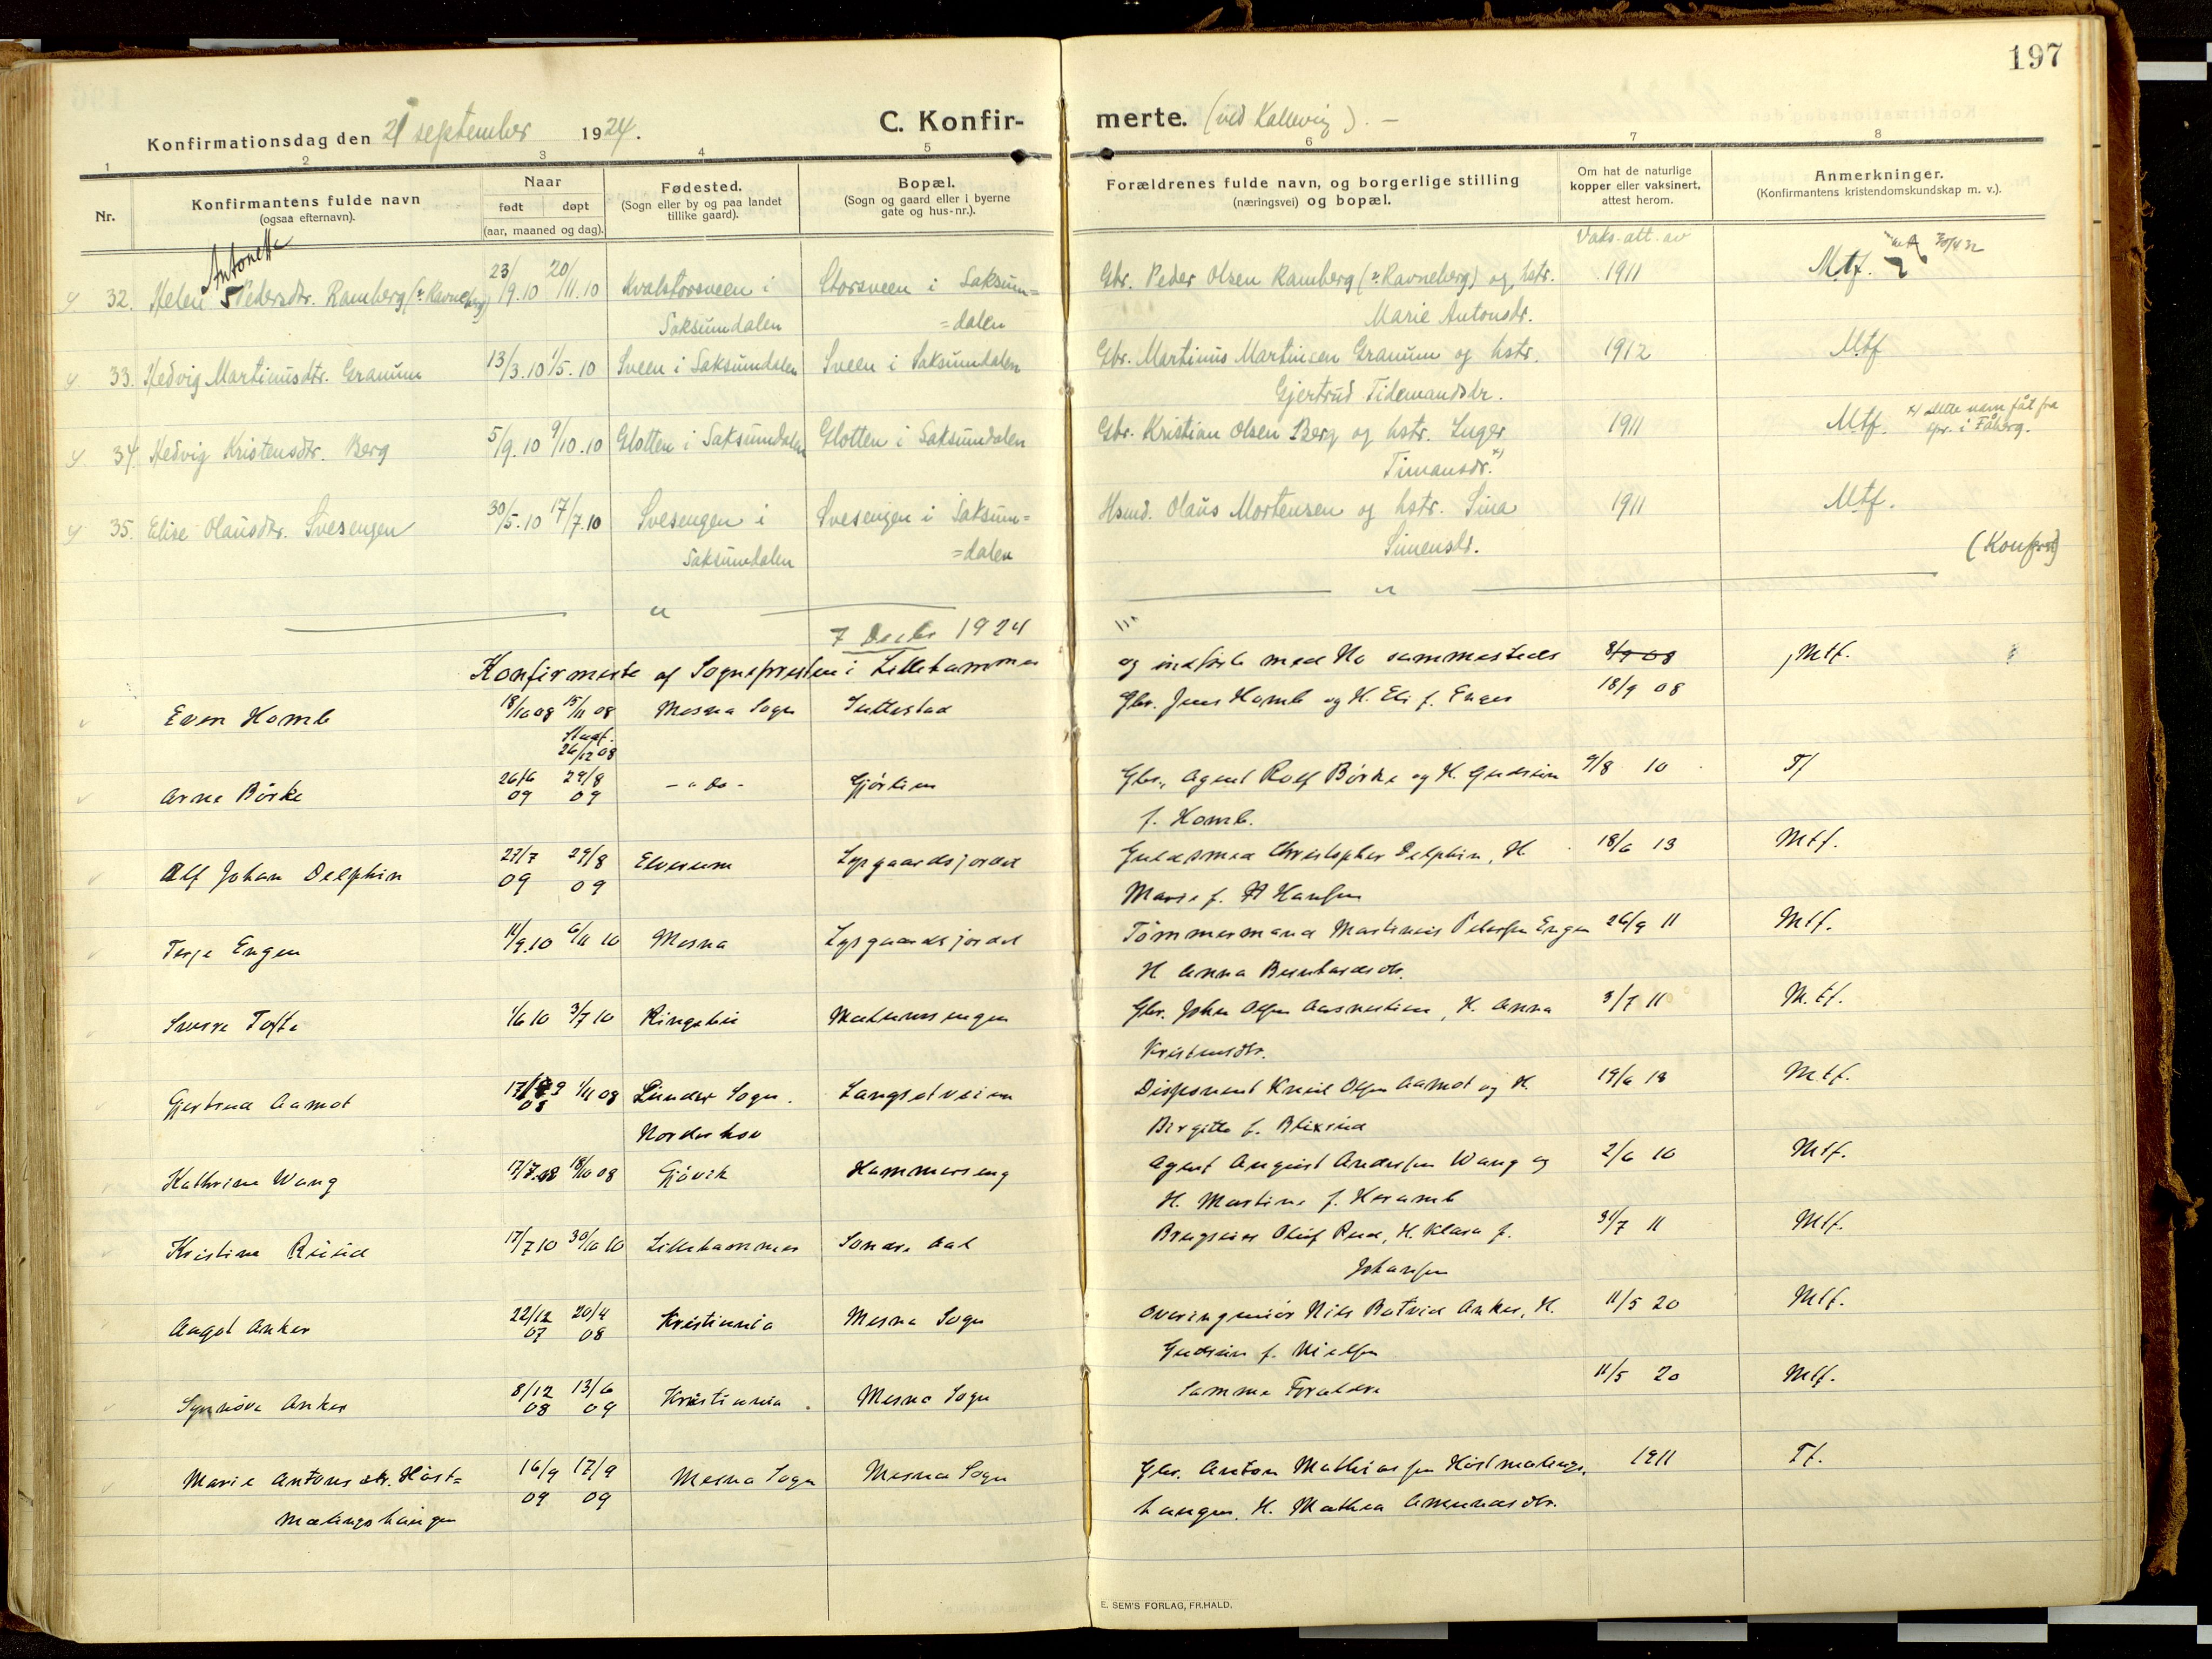 197
Konfirmationsdag den 21 september 1924. C. Konfirmerte. (ved Kallevig). —
1 2 3 4 5 6 7 8
Nr. Konfirmantens fulde navn (ogsaa efternavn). Naar født døpt (aar, maaned og dag). Fødested. (Sogn eller by og paa landet tillike gaard). Bopæl. (Sogn og gaard eller i byerne gate og hus-nr.). Forældrenes fulde navn, og borgerlige stilling (næringsvei) og bopæl. Om hat de naturlige kopper eller vaksinert, attest herom. Anmerkninger. (Konfirmantens kristendomskundskap m. v.).
Vaks. att. av
Antonette
32. Helen Pedersdtr. Ramberg (: Ravneberg) 23/9.10 20/11.10 Kvalstorsveen i Storsveen i Saksum= Gbr. Peder Olsen Ramberg (: Ravneberg) og hstr. 1911 Mtf. 30/4 32
Saksumdalen =dalen Marie Antonsdr.
33. Hedvig Martinusdtr. Granum 13/3.10 1/5.10 Sveen i Saksumdalen Sveen i Saksumdalen Gbr. Martinus Martinsen Granum og hstr. 1912 Mtf
Gjertrud Tidemandsdr.
34. Hedvig Kristensdtr. Berg 5/9.10 9/10.10 Glotten i Saksumdalen Glotten i Saksumdalen Gbr. Kristian Olsen Berg og hstr. Inger 1911 Mtf. x) dette navn fåt fra spr. i Fåberg.
Timansdr. x)
35. Elise Olausdtr. Svesengen 30/5.10 17/7.10 Svesengen i Svesengen i Saksum= Hsmd. Olaus Mortensen og hstr. Sina 1911 Mtf.
Saksumdalen =dalen Simensdr. (Konfrst)
7 Decbr 1924
Konfirmerte af Sognepresten i Lillehammer og indførte med No sammesteds 8/9 08 Mtf.
Even Homb 18/10 08 15/11 08 Mesna Sogn Suttestad Gbr. Jens Homb og H. Eli f. Enger 18/9 08
Stadf. 26/12 08
Arne Børke 26/6 09 29/8 09 — " do - Gjørlien Gbr., Agent Rolf Børke og H. Gudrun 9/8 10 Tf
f. Homb.
Alf Johan Delphin 27/7 09 29/8 09 Elverum Lysgaardsjordet Guldsmed Christopher Delphin, H. 18/6 13 Mtf.
Marie f. Hansen
Terje Engen 11/9.10 6/11 10 Mesna Lysgaardsjordet Tømmermand Martinus Petersen Engen 26/9 11 Mtf.
H. Anna Berntsdr.
Sverre Tofte 1/6 10 3/7 10 Ringebu Gbr. Johan Olsen, H. Anna 3/7 11 M.tf.
Kristensdtr.
Gjertrud Aamot 08 1/11 08 Lunder Sogn. Langsetveien Disponent Olsen Aamot og H. 19/6 18 M.tf.
Norderhov Birgitte f.
Kathrine Wang 17/7.08 18/10 08 Gjøvik Hammerseng Agent August Andersen Wang og 2/6 10 Mtf.
H. Martine f.
Kristine Ruud 17/7 10 30/10 10 Lillehammer Søndre Aal Olaf Ruud, H. Klara f. 31/7 11 Mtf.
Johansen
Aagot Anker 22/12 07 20/4 08 Kristiania Mesna Sogn Overingeniør Nils Botvid Anker, H. 11/5 20 Mtf.
Gudrun f. Nielsen
Synnøve Anker 8/12 08 13/6 09 Kristiania Mesna Sogn Samme Forældre 11/5 20 Mtf.
Marie Antonsdtr. Høst= 16/9 09 17/9 09 Mesna Sogn Mesna Sogn Gbr. Anton Mathiassen Høstmælings. 1911 Tf.
mælingshaugen haugen, H. Mathea Amundsdtr.
E. SEM'S FORLAG, FR.HALD.